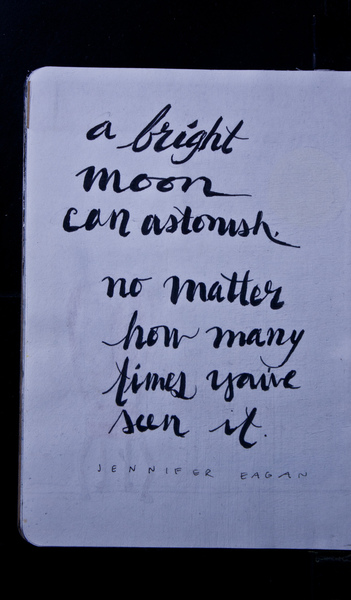 a bright
moon
can astonish.
no matter
how many
times you've
seen it.
JENNIFER EAGAN